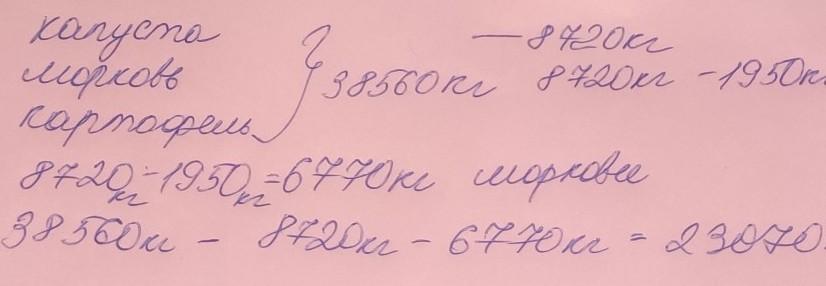 капуста — 8720кг
морковь } 38560кг 8720кг - 1950к
картофель
8720кг - 1950кг = 6770кг моркови
38560кг - 8720кг - 6770кг = 23070